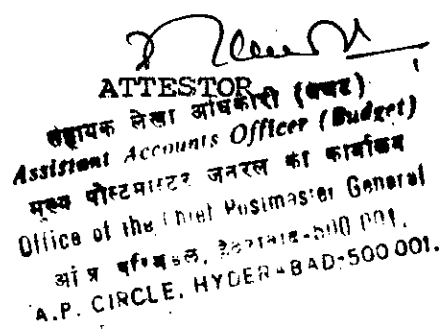 ATTESTOR
सहायक लेखा अधिकारी (बजट)
Assistant Accounts Officer (Budget)
मुख्य पोस्टमास्टर जनरल का कार्यालय
Office of the Chief Postmaster General
आं प्र सर्किल, हैदराबाद-500 001.
A.P. CIRCLE, HYDERABAD-500 001.